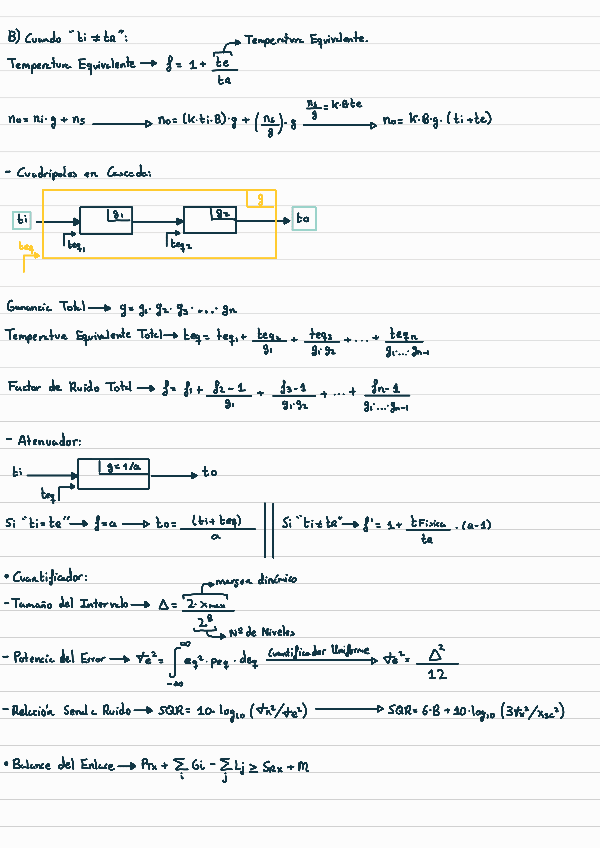 B) Cuando "ti ≠ ta":
Temperatura Equivalente.
Temperatura Equivalente → f = 1 + te/ta
no = ni·g + ns → no = (k·ti·B)·g + (ns/g)·g → ns/g = k·B·te → no = k·B·g·(ti+te)
- Cuadripolos en Cascada:
g
ti g1 g2 to
teq teq1 teq2
Ganancia Total → g = g1·g2·g3·...·gn
Temperatura Equivalente Total → teq = teq1 + teq2/g1 + teq3/g1·g2 + ... + teqn/g1·...·gn-1
Factor de Ruido Total → f = f1 + f2-1/g1 + f3-1/g1·g2 + ... + fn-1/g1·...·gn-1
- Atenuador:
ti g=1/a to
teq
Si "ti=ta" → f=a → to = (ti+teq)/a || Si "ti≠ta" → f' = 1 + tFísica/ta · (a-1)
• Cuantificador:
margen dinámico
- Tamaño del Intervalo → Δ = 2·xmax/2^B
Nº de Niveles
- Potencia del Error → σe² = ∫_-∞^∞ eq²·peq·deq Cuantificador Uniforme → σe² = Δ²/12
- Relación Señal a Ruido → SQR = 10·log10 (σx²/σe²) → SQR = 6·B + 10·log10 (3σx²/xsc²)
• Balance del Enlace → PTx + Σi Gi - Σj Lj ≥ SRx + M